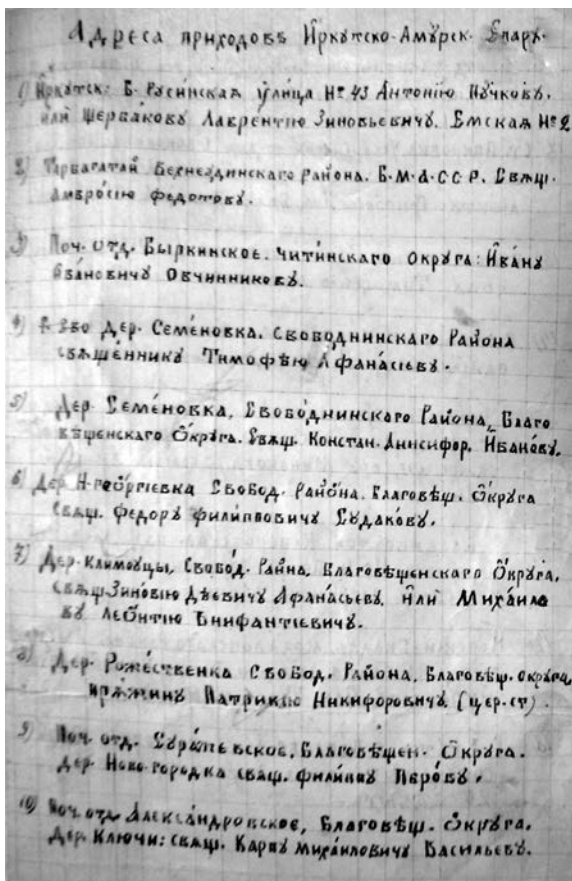 Адреса приходовъ Иркутско-Амурск. Епарх.
1) Иркутск: Б. Русинская улица № 43 Антонію Пучкову,
или Щербакову Лаврентію Зиновьевичу. Емская № 2
2) Тарбагатай Верхнеудинскаго района. Б.М.А.С.С.Р. Свящ.
Амвросію Федотову.
3) Поч. отд. Быркинское. Читинскаго Округа: Ивану
Ивановичу Овчинникову.
4) Дер. Семеновка. Свободнинскаго Района
священнику Тимофѣю Афанасіеву.
5) Дер. Семеновка, Свободнинскаго Района, Благо
вѣшенскаго Округа. Свящ. Констан. Аннсифор. Иванову.
6) Дер. Н-георгіевка Свобод. Района, Благовѣщ. Округа
свящ. Федору Филипповичу Судакову.
7) Дер. Климоуцы, Свобод. Райна, Благовѣшенскаго Округа,
свящ. Зиновію Дѣевичу Афанасьеву, или Михаила
ву Леонтію Енифантіевичу.
8) Дер. Рожественка Свобод. Района, Благовѣщ. округа,
Пряжину Патрикію Никифоровичу. (цер. ст).
9) Поч. отд. Суражевское, Благовѣшен. Округа.
Дер. Ново-городка свящ. Филиппу Перову.
10) Поч. отд. Александровское, Благовѣщ. Округа.
Дер. Ключи: свящ. Карпу Михаиловичу Васильеву.